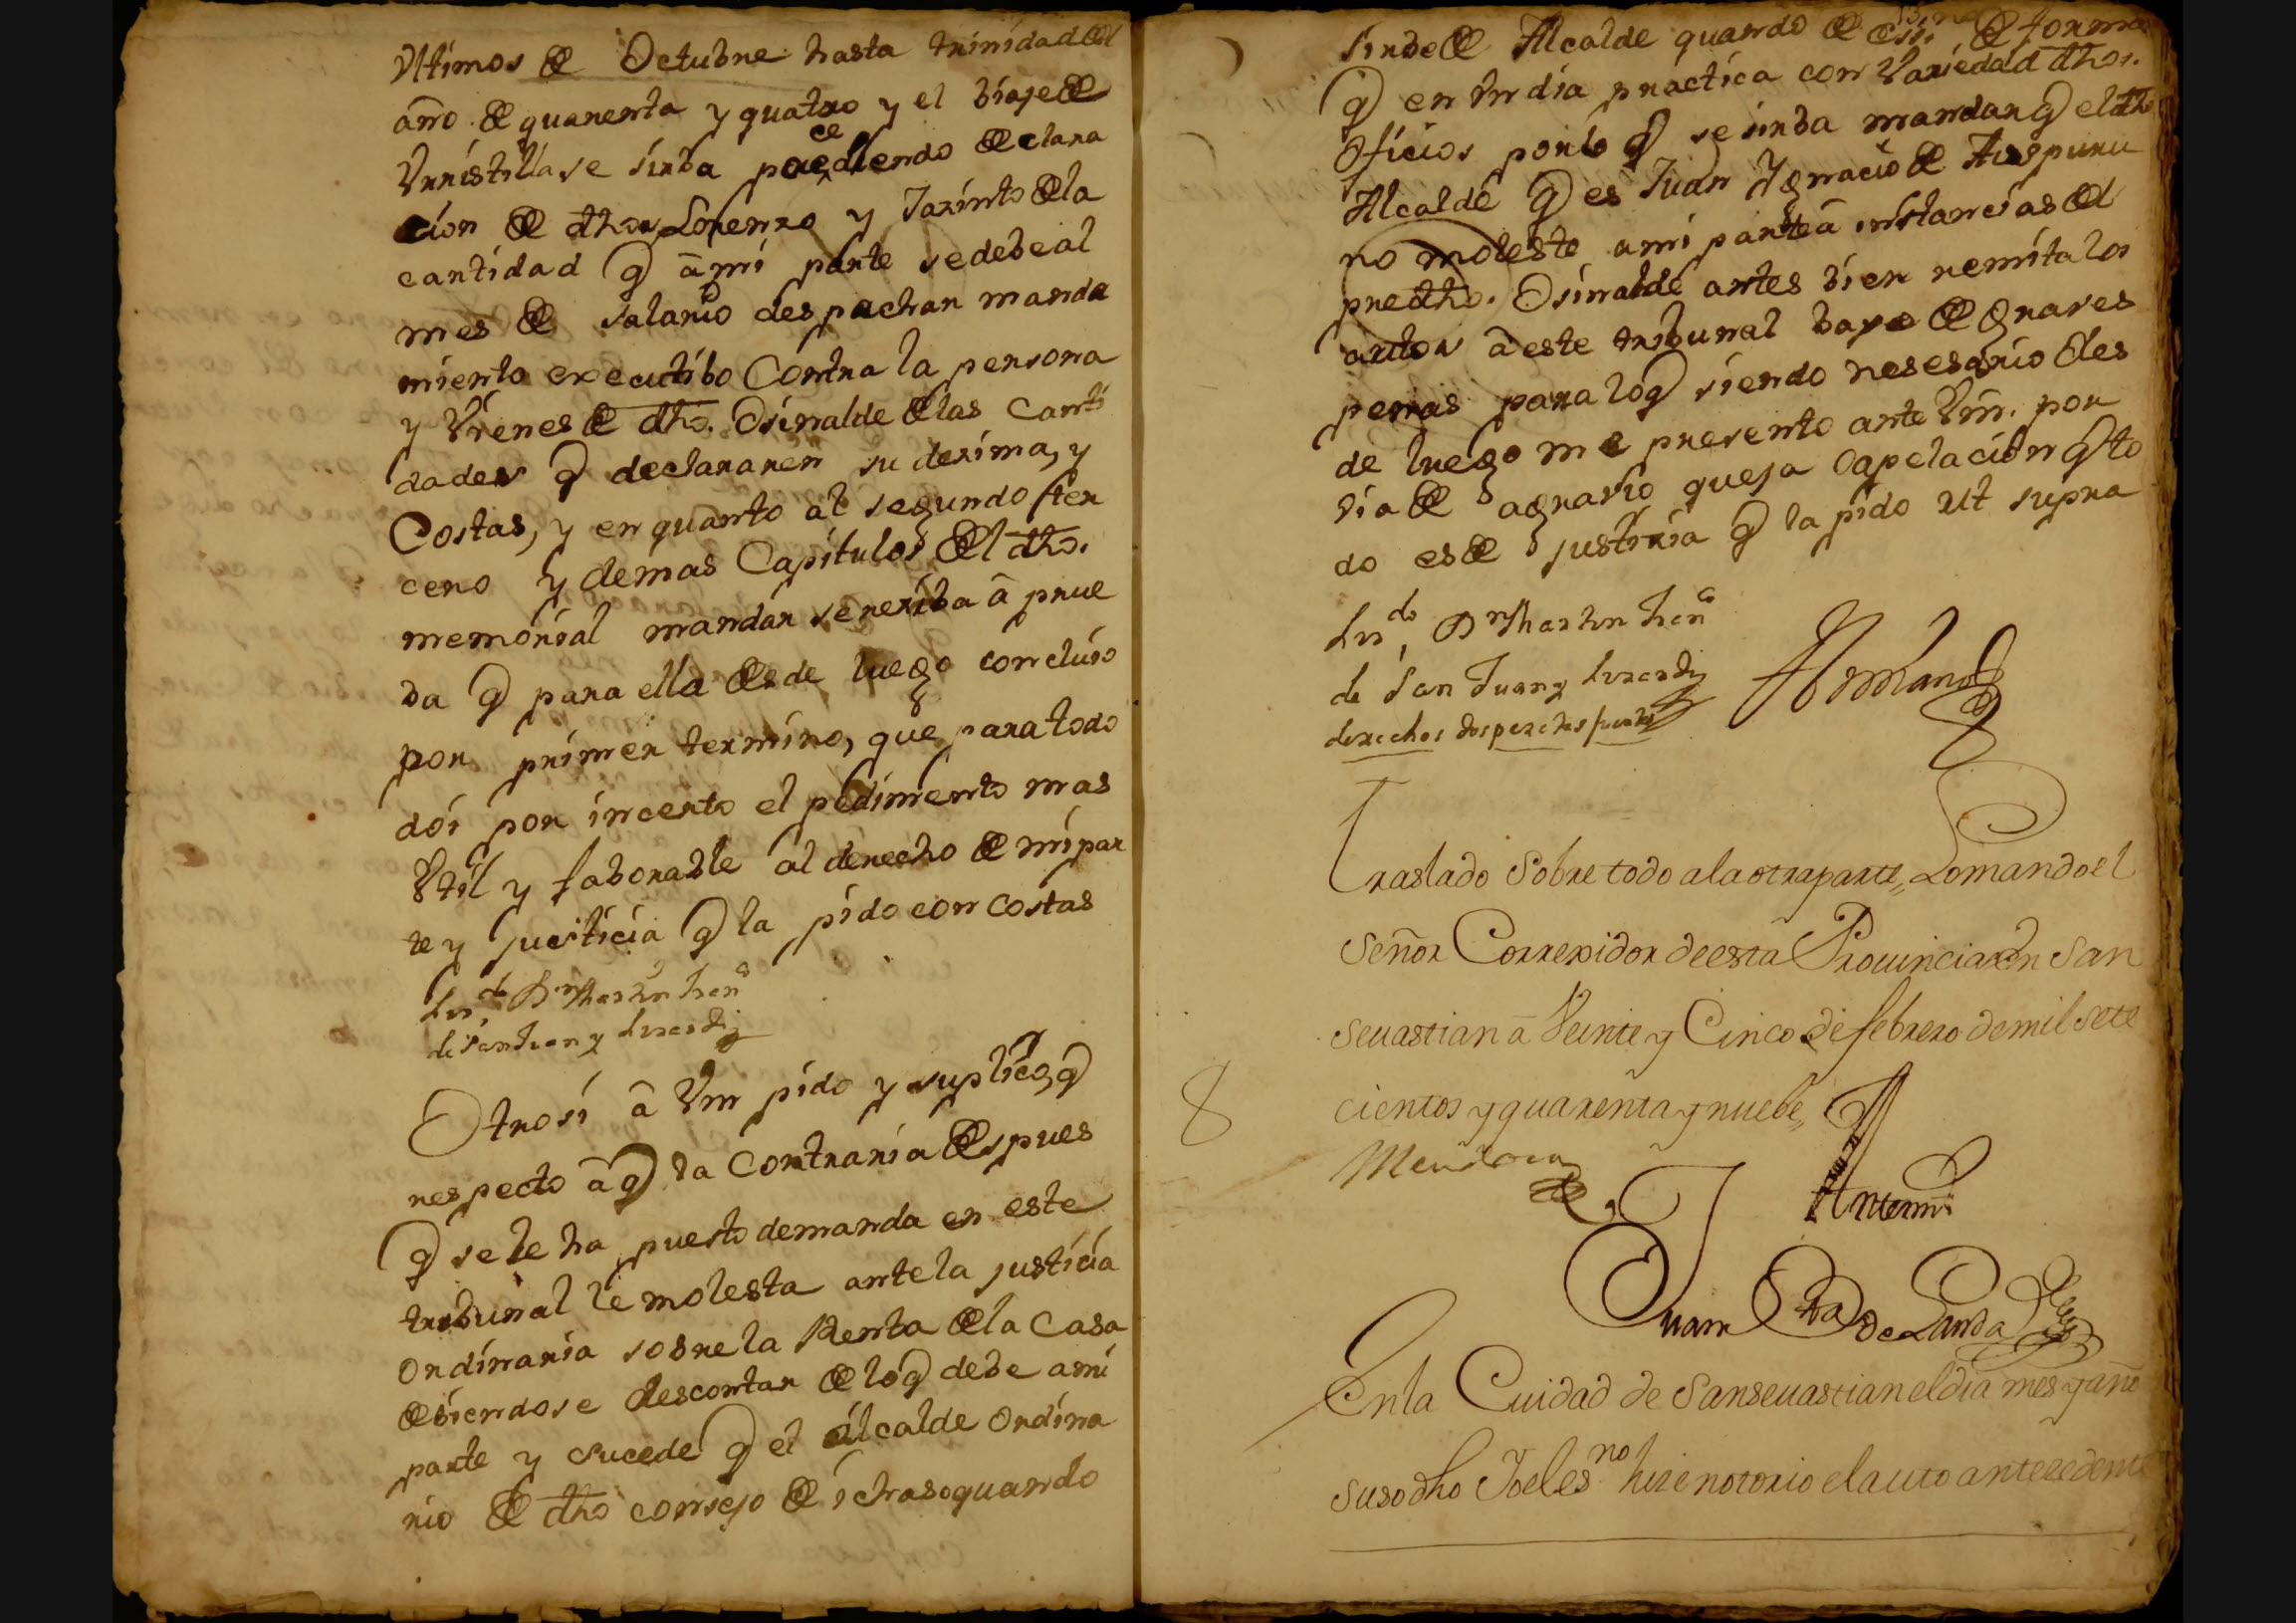 Vltimos de Octubre hasta trinidad del
año de quarenta y quatro y el biaje de
Vrristilla se sirba precediendo declara
cion de dhos Lorenzo y Jazinto de la
cantidad q a mi parte se debe al
mes de salario despachar manda
miento executibo Contra la persona
y Vienes de dho. Osinalde de las Canti
dades q declararen su dezima, y
Costas, y en quanto al segundo ter
cero y demas Capitulos del dho.
memorial mandar se reziba a prue
ba q para ella desde luego concluio
por primer termino, que para todo
doi por incerto el pedimento mas
Vtil y faborable al derecho de mi par
te y justicia q la pido con costas
Liz.do Dn Martin Fran.co
de San Juan y
Otrosi a Vm pido y suplico q
respecto a q la Contraria despues
q se le ha puesto demanda en este
tribunal le molesta ante la justicia
ordinaria sobre la Renta de la Casa
debiendose descontar de lo q debe a mi
parte y sucede q el alcalde ordina
rio de dho consejo de ichaso quando
sirbe de Alcalde quando de essno de forma
q en Vn dia practica con Variedad dhos.
Oficios por lo q se sirba mandar q el dho
Alcalde q es Juan Ygnacio de Aizpuru
no moleste a mi parte a instancias del
predho. Osinalde antes bien remita los
autos a este tribunal baxo de graves
penas para lo q siendo nesesario des
de luego me presento ante Vm. por
via de agravio queja o apelacion q to
do es de justizia q la pido ut supra
Liz.do Dn Martin Fran.co
de San Juan y
derechos dos pesetas
Traslado Sobre todo a la otra parte, Lo mando el
Señor Correxidor de esta Prouincia en San
Seuastian a Veinte y Cinco de febrero de mil Sete
cientos y quarenta y nuebe,,
Mendoza
Antemi
Juan Bta de Landa
En la Cuidad de San seuastian el dia mes y año
susodho Yo el es.no hize notorio el auto antezedente